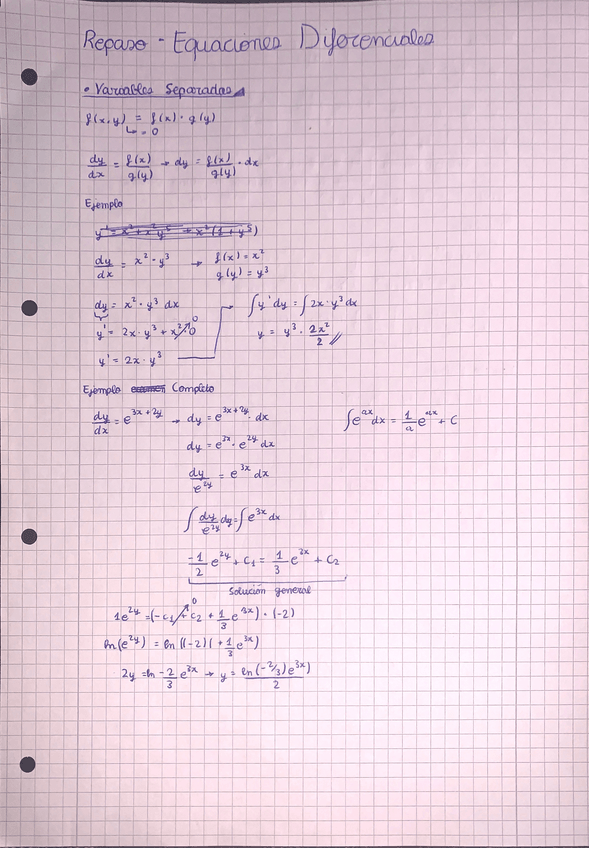 Repaso - Equaciones Diferenciales
• Variables Separadas
f(x,y) = f(x) · g(y)
↳ = 0
dy/dx = f(x)/g(y) → dy = f(x)/g(y) · dx
Ejemplo
y' = x² + x² y⁵ → x²(1 + y⁵)
dy/dx = x² · y³ → f(x) = x²
g(y) = y³
dy = x² · y³ dx
y' = 2x · y³ + x² · 0 0
y' = 2x · y³
∫ y' dy = ∫ 2x · y³ dx
y = y³ · 2x²/2 //
Ejemplo examen Completo
dy/dx = e^(3x + 2y) → dy = e^(3x + 2y) · dx
∫ e^(ax) dx = 1/a e^(ax) + C
dy = e^(3x) · e^(2y) dx
dy/e^(2y) = e^(3x) dx
∫ dy/e^(2y) dy = ∫ e^(3x) dx
-1/2 e^(2y) + C₁ = 1/3 e^(3x) + C₂
Solución general
1e^(2y) = (-C₁ + C₂ + 1/3 e^(3x)) · (-2) 0
ln(e^(2y)) = ln((-2)( + 1/3 e^(3x))
2y = ln -2/3 e^(3x) → y = ln(-2/3)e^(3x))/2